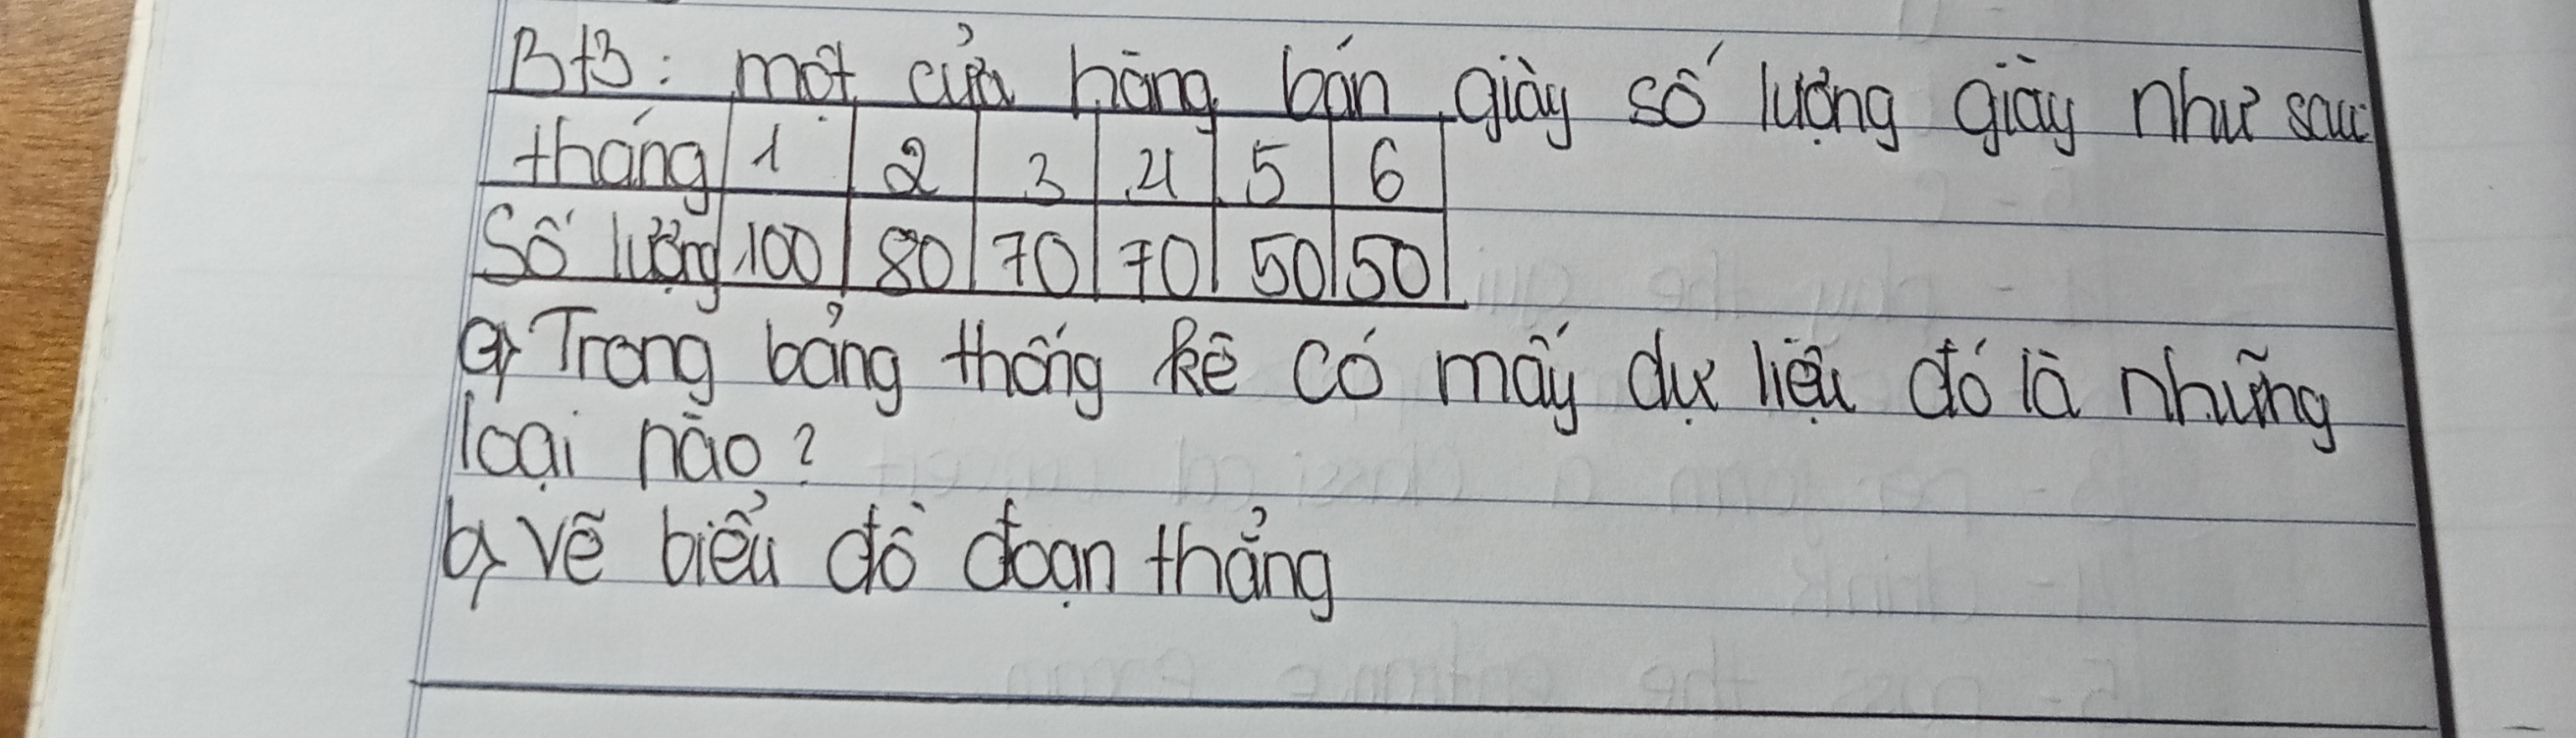 Bt3: một cửa hàng bán giày số lượng giày như sau:
tháng 1 2 3 4 5 6
Số lượng 100 80 70 70 50 50
a, Trong bảng thống kê có mấy dự liệu đó là những
loại nào?
b, vẽ biểu đồ đoạn thẳng